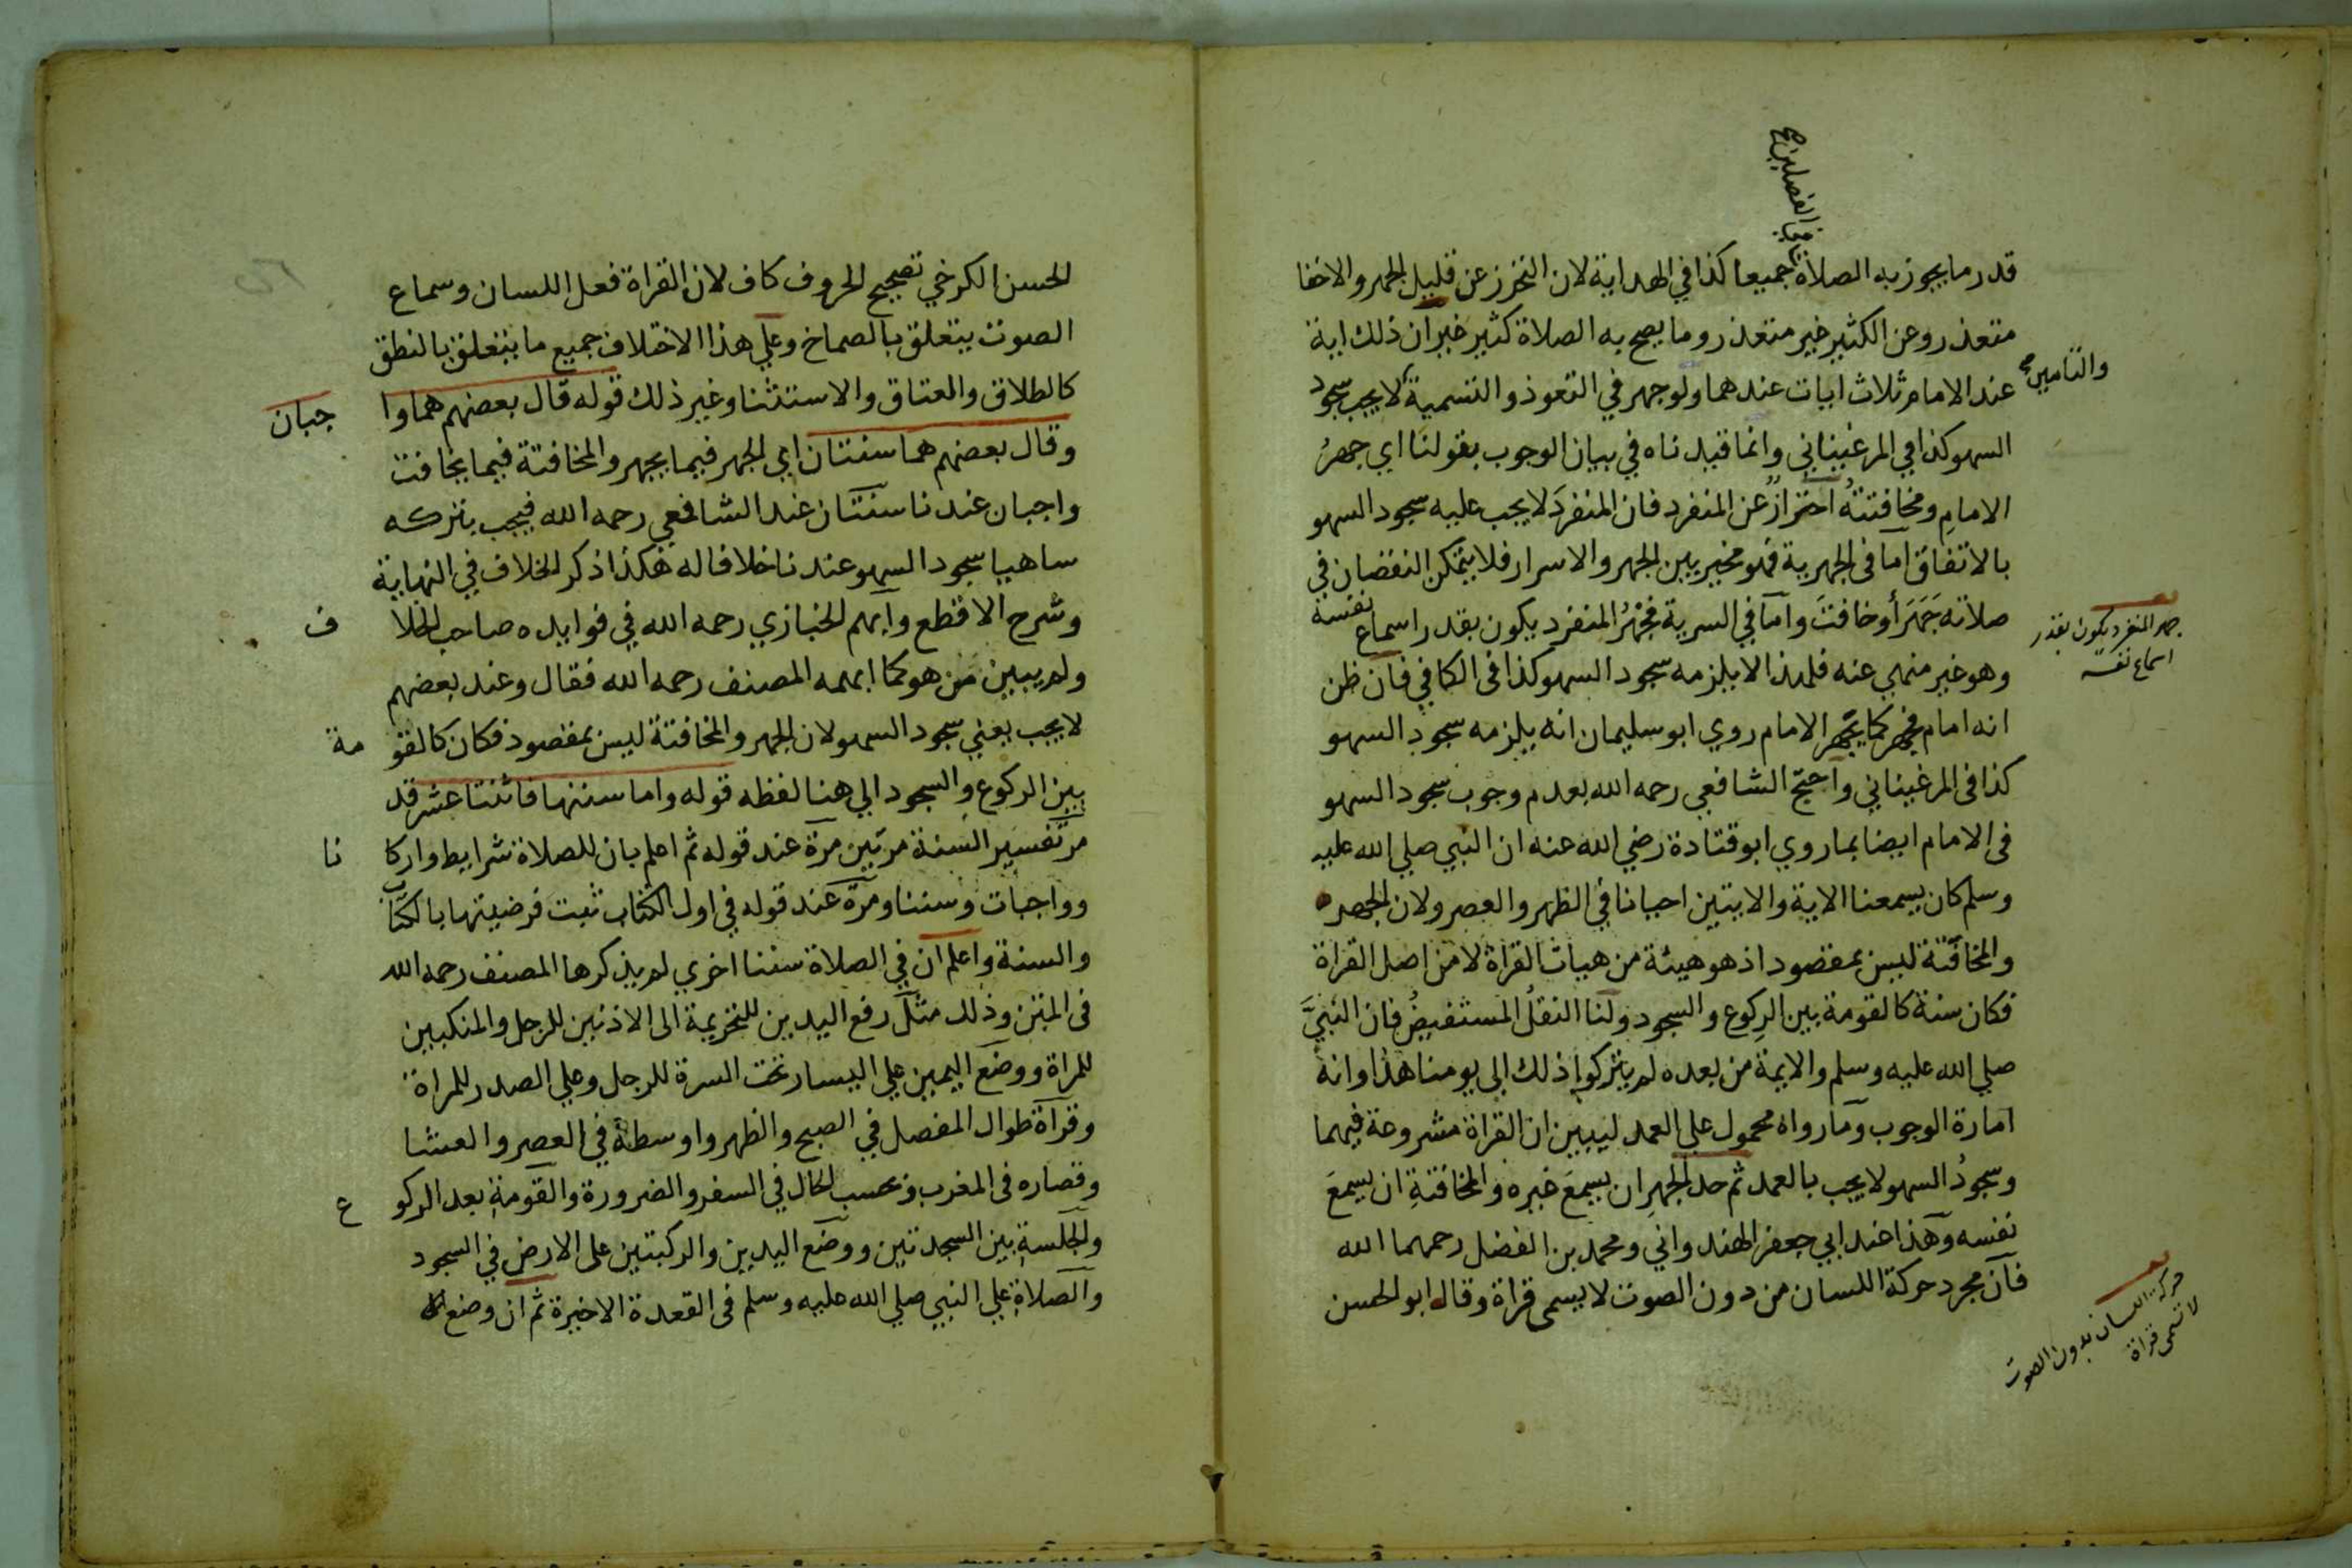 في الفصلين صح
قدر ما يجوز به الصلاة جميعا كذا في الهداية لان التحرز عن قليل الجهر والاخفا
متعذر وعن الكثير غير متعذر وما يصح به الصلاة كثير غير ان ذلك اية
عند الامام ثلاث ايات عندهما ولو جهر في التعوذ والتسمية لا يجب سجود
والتامين صح
السهو كذا في المرغيناني وانما قيدناه في بيان الوجوب بقولنا اي جهرُ
الامامِ ومخافتتهُ احترازٌ عن المنفرد فان المنفردَ لا يجب عليه سجود السهو
بالاتفاق اما فى الجهرية فهو مخير بين الجهر والاسرار فلا يتمكن النقصان في
صلاته جَهَرَ أو خافتَ واما في السرية فجهْرُ المنفرد يكون بقدر اسماع نفسه
جهر المنفرد يكون بقدر
اسماع نفسه
وهو غير منهي عنه فلهذا لا يلزمه سجود السهو كذا فى الكافي فان ظن
انه امام فجهر كما يجهر الامام روي ابو سليمان انه يلزمه سجود السهو
كذا فى المرغيناني واحتج الشافعي رحمه الله بعدم وجوب سجود السهو
فى الامام ايضا بما روي ابو قتادة رضي الله عنه ان النبي صلي الله عليه
وسلم كان يسمعنا الاية والايتين احيانا في الظهر والعصر ولان الجهر
والمخافتة ليس بمقصود اذ هو هيئة من هيات القراة لا من اصل القراة
فكان سنة كالقومة بين الركوع والسجود ولنا النقلُ المستفيضُ فان النبيَّ
صلي الله عليه وسلم والايمة من بعده لم يتركوا ذلك الي يومنا هذا وانه
امارة الوجوب وما رواه محمول علي العمد ليبين ان القراة مشروعة فيهما
وسجودُ السهو لا يجب بالعمد ثم حد الجهرِ ان يسمعَ غيره والمخافتةِ ان يسمعَ
نفسه وهذا عند ابي جعفر الهندواني ومحمد بن الفضل رحمهما الله
فان مجرد حركة اللسان من دون الصوت لا يسمى قراة وقال ابو الحسن
حركة اللسان بدون الصوت
لا تسمى قراة
الحسن الكرخي تصحيح الحروف كاف لان القراة فعل اللسان وسماع
الصوت يتعلق بالصماخ وعلي هذا الاختلاف جميع ما يتعلق بالنطق
كالطلاق والعتاق والاستثنا وغير ذلك قوله قال بعضهم هما وا جبان
وقال بعضهم هما سنتان اي الجهر فيما يجهر والمخافتة فيما يخافت
واجبان عندنا سنتان عند الشافعي رحمه الله فيجب بتركه
ساهيا سجود السهو عندنا خلافا له هكذا ذكر الخلاف في النهاية
وشرح الاقطع وابهم الخبازي رحمه الله في فوايده صاحب الخلا ف
ولم يبين مَن هو كما ابهمه المصنف رحمه الله فقال وعند بعضهم
لا يجب يعني سجود السهو لان الجهر والمخافتة ليس بمقصود فكان كالقو مة
بين الركوع والسجود الي هنا لفظه قوله واما سننها فاثنتا عشر قد
مر تفسير السنة مرتين مرة عند قوله ثم اعلم بان للصلاة شرايط واركا نا
وواجبات وسننا ومرّة عند قوله في اول الكتاب ثبت فرضيتها بالكتاب
والسنة واعلم ان في الصلاة سننا اخري لم يذكرها المصنف رحمه الله
فى المتن وذلك مثل رفع اليدين للتحريمة الى الاذنين للرجل والمنكبين
للمراة ووضع اليمين علي اليسار تحت السرة للرجل وعلي الصدر للمراة
وقراة طوال المفصل في الصبح والظهر واوسطه في العصر والعشا
وقصاره فى المغرب وبحسب الحال في السفر والضرورة والقومةِ بعد الركو ع
والجلسةِ بين السجدتين ووضع اليدين والركبتين على الارض في السجود
والصلاةِ علي النبي صلي الله عليه وسلم فى القعدة الاخيرة ثم ان وضع